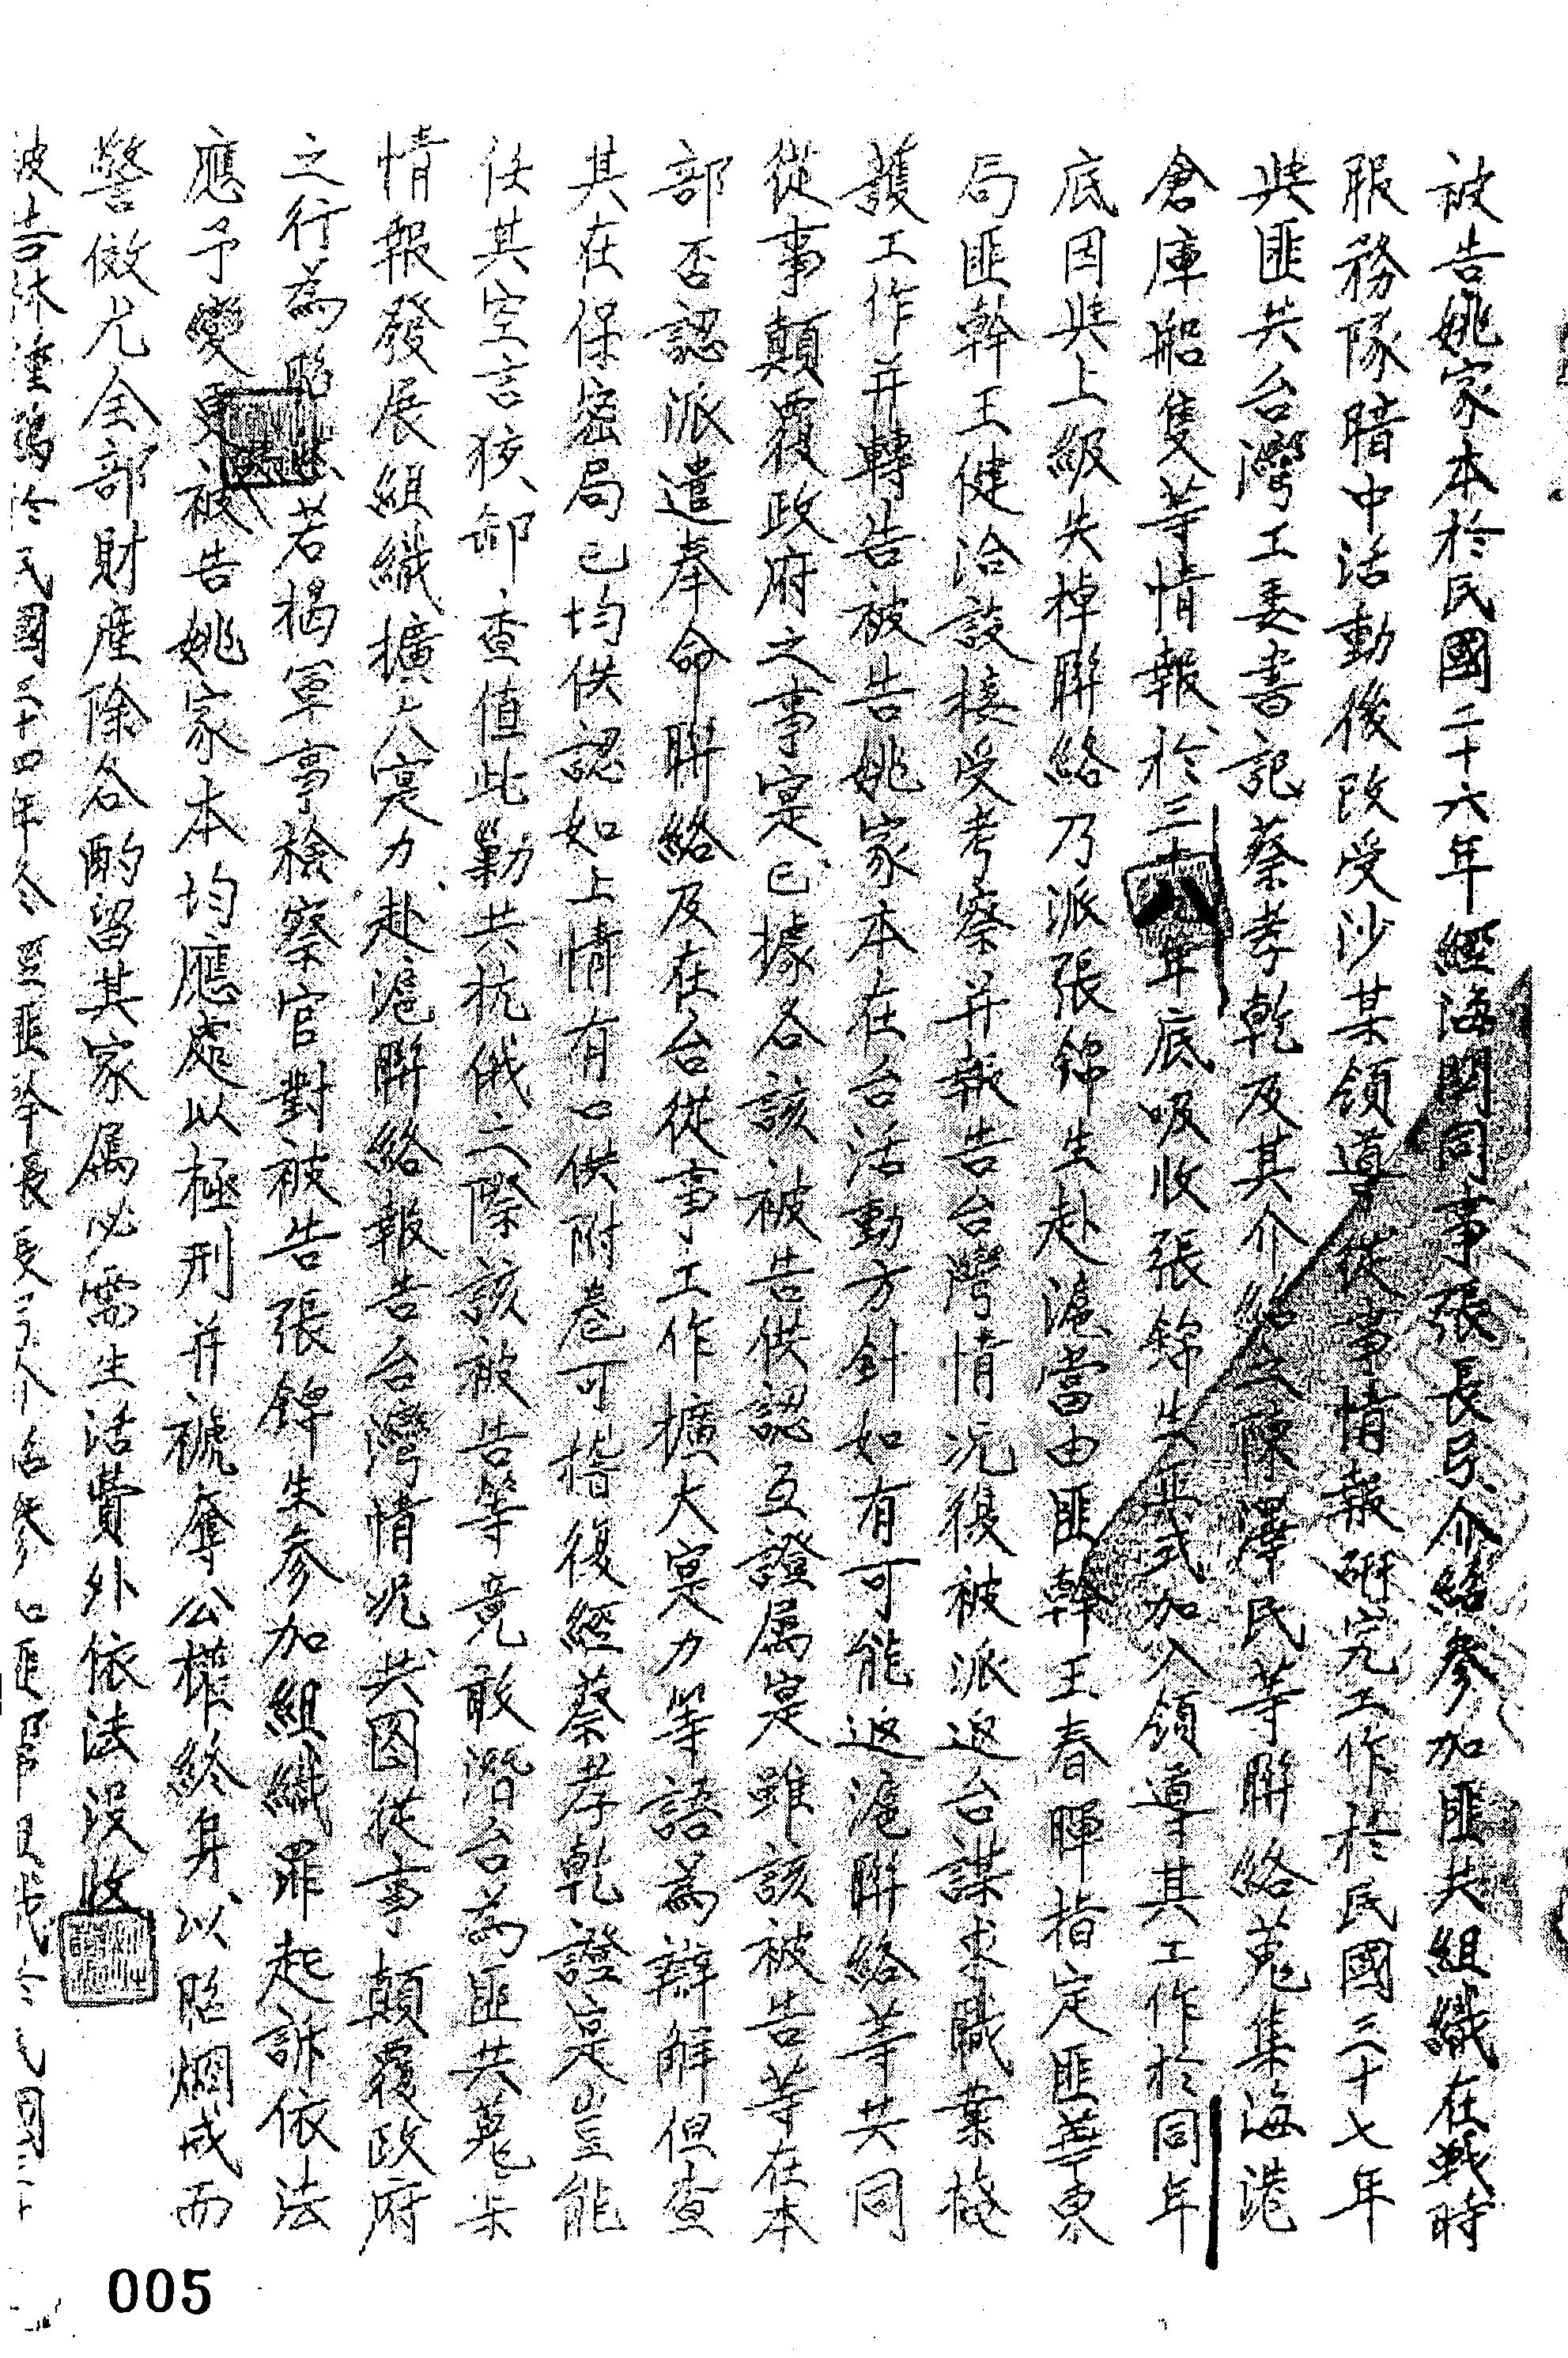 被告姚家本於民國二十六年經海關同事張長弓介紹參加匪共組織在戰時
服務隊暗中活動後改受沙某領導從事情報研究工作於民國三十七年
與匪共台灣工委書記蔡孝乾及其介紹之陳澤民等聯絡蒐集海港
倉庫船隻等情報於三十八年底吸收張錦生與式加入領導其工作於同年
底因與上級失掉聯絡乃派張錦生赴滬當由匪幹王春暉指定匪華東
局匪幹王健洽談接受考察并報告台灣情況後被派返台謀求職業掩
護工作并轉告被告姚家本在台活動方針如有可能返滬聯絡等共同
從事顛覆政府之事寔已據各該被告供認互證属寔雖該被告等在本
部否認派遣奉命聯絡及在台從事工作擴大寔力等語為辯解但查
其在保密局已均供認如上情有口供附卷可稽後經蔡孝乾證寔豈能
任其空言狡卸查值此勦共抗俄之際該被告等竟敢潛台為匪共蒐集
情報發展組織擴大寔力赴滬聯絡報告台灣情況共图從事顛覆政府
之行為昭然若揭軍事檢察官對被告張錦生參加組織罪起訴依法
應予變更被告姚家本均應處以極刑并褫奪公權終身以昭烱戒而
警傚尤全部財産除各酌留其家属必需生活費外依法没收
被告 民國三十四年冬 匪幹張長弓介紹參
005